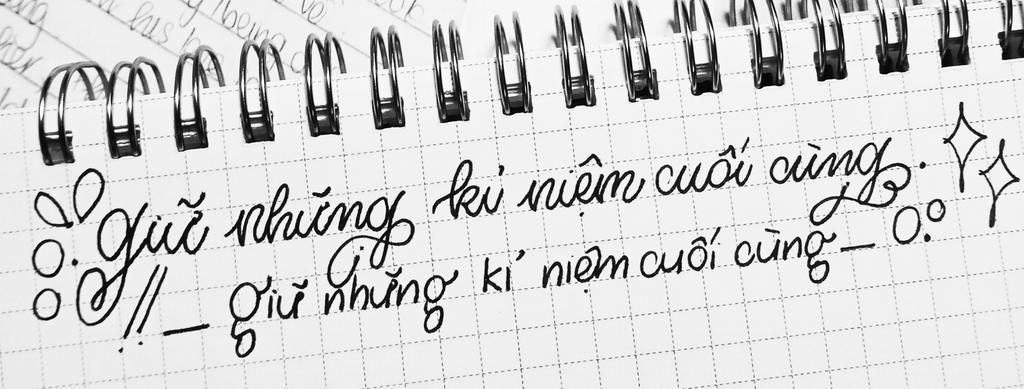 giữ những kỉ niệm cuối cùng.
giữ những kỉ niệm cuối cùng